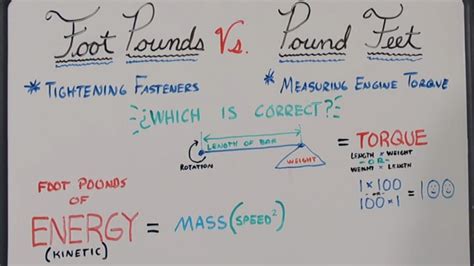 Foot Pounds Vs. Pound Feet
* TIGHTENING FASTENERS
* MEASURING ENGINE TORQUE
¿WHICH IS CORRECT?
LENGTH OF BAR
ROTATION
WEIGHT
= TORQUE
LENGTH × WEIGHT
- OR -
WEIGHT × LENGTH
1×100
- OR -
100×1
= 100
FOOT POUNDS
OF
ENERGY = MASS(SPEED²)
(KINETIC)